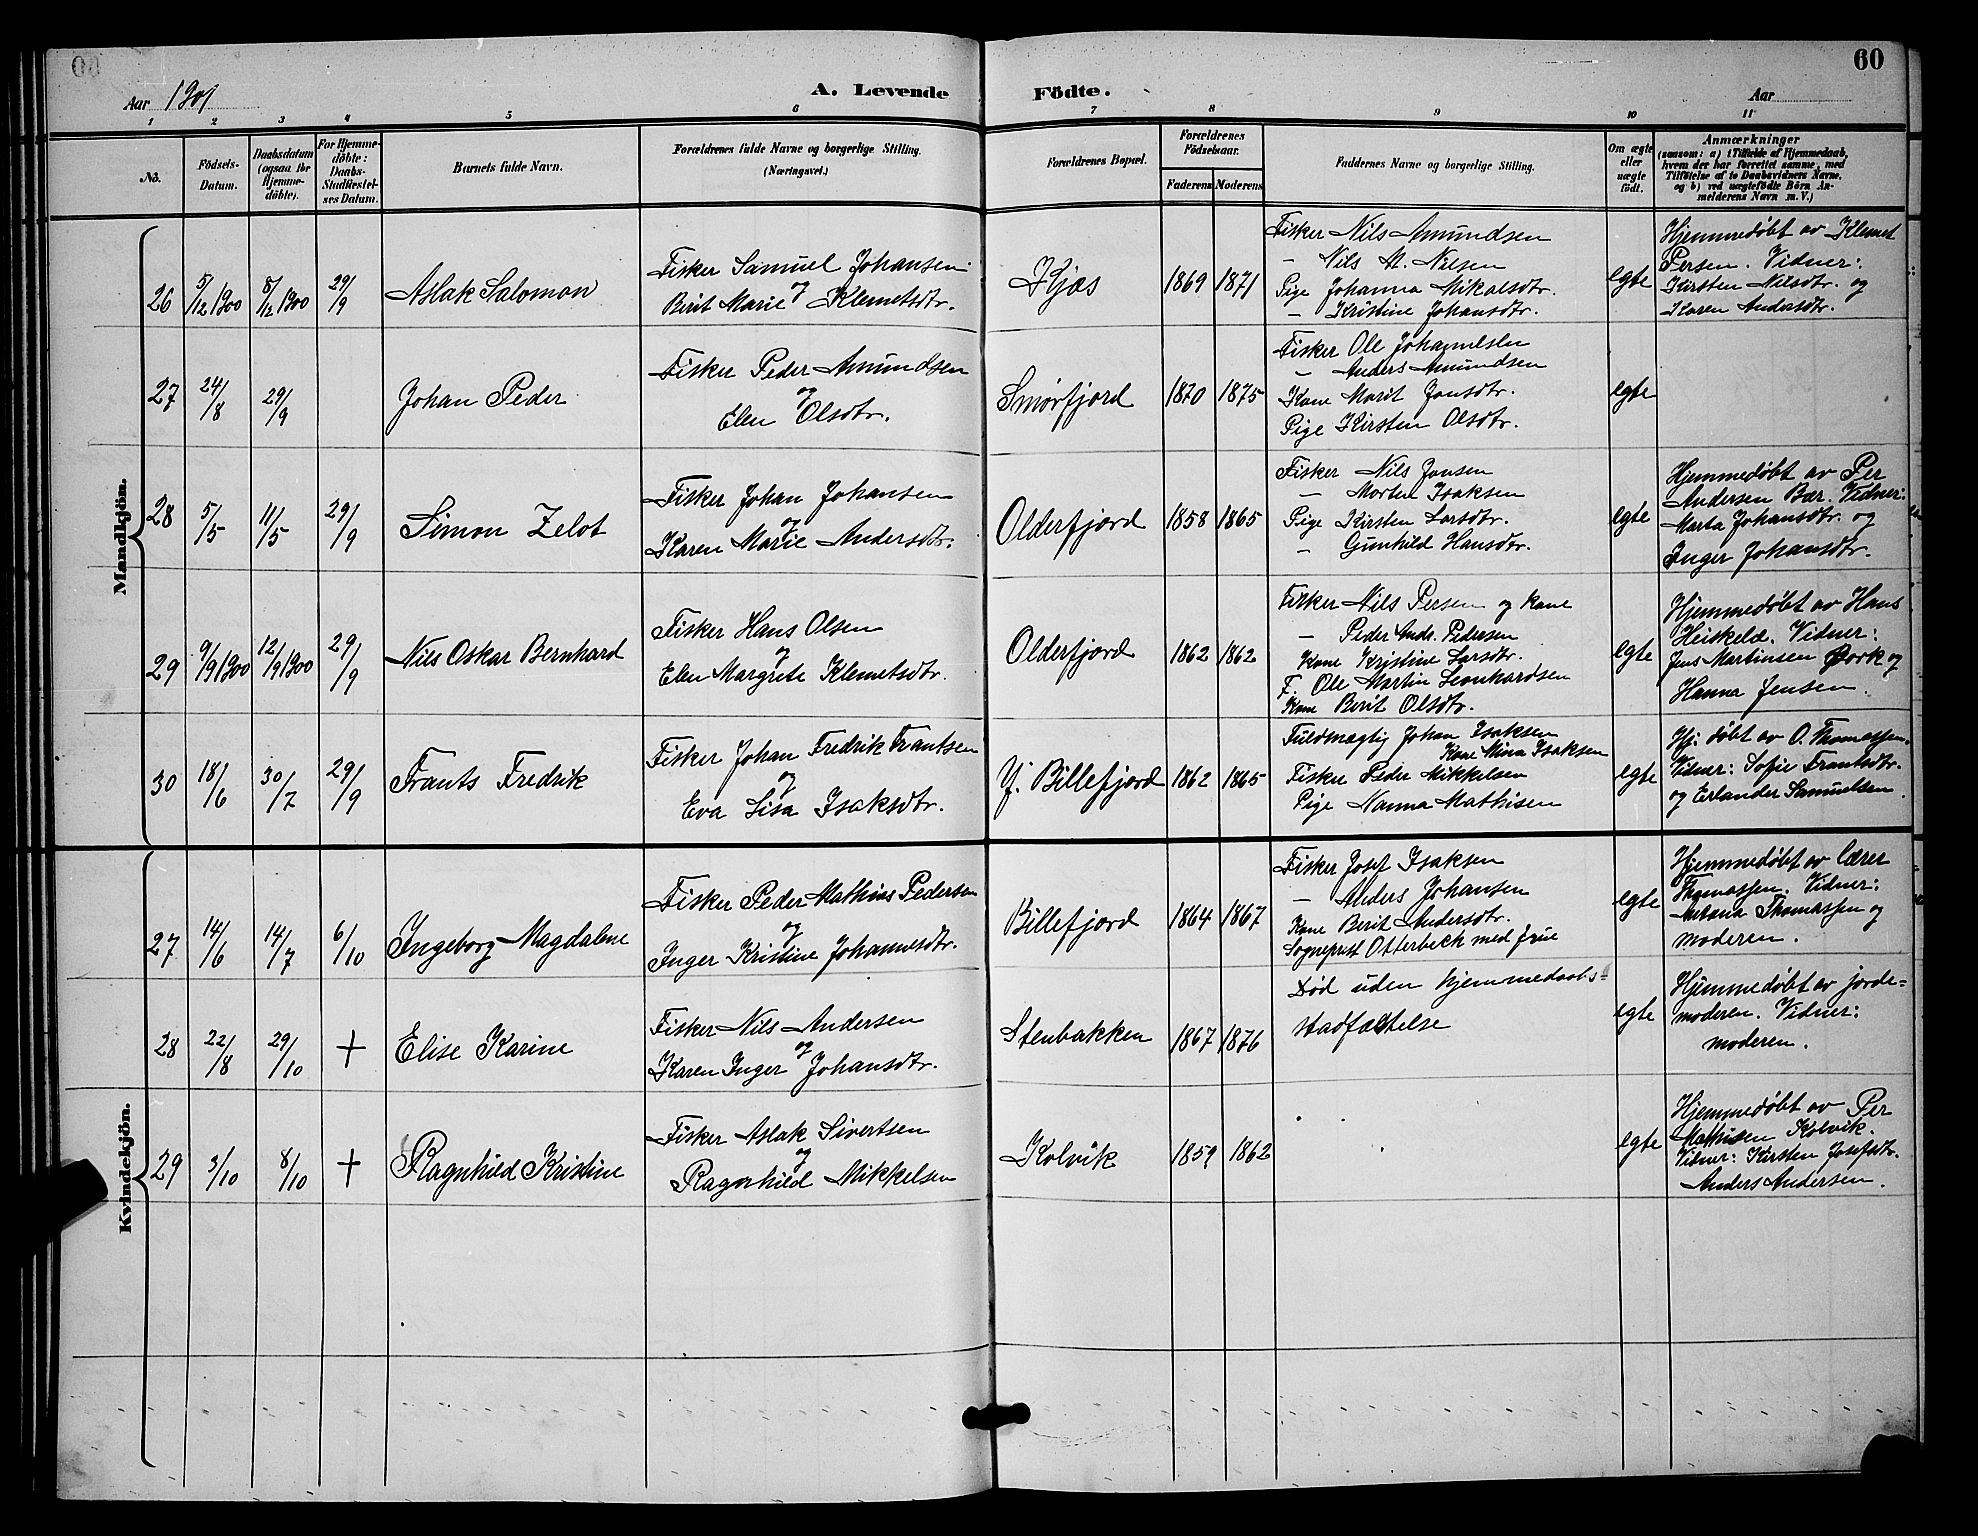 60
Aar 1901
A. Levende Födte.
Aar
1 2 3 4 5 6 7 8 9 10 11
No.
Födsels-Datum.
Daabsdatum (ogsaa for Hjemme-döbte).
For Hjemme-döbte: Daabs-Stadfæstel-ses Datum.
Barnets fulde Navn.
Forældrenes fulde Navne og borgerlige Stilling.
(Næringsvei.)
Forældrenes Bopæl.
Forældrenes Födselsaar.
Faderens Moderens
Faddernes Navne og borgerlige Stilling.
Om ægte eller uægte födt.
Anmærkninger
(saasom: a) i Tilfælde af Hjemmedaab,
hvem der har forrettet samme, med
Tilföielse af to Daabsvidners Navne,
og b) ved uægtefödte Börn An-
melderens Navn m. V.)
Mandkjön.
26 5/12 1900 8/12 1900 29/9 Aslak Salomon
Fisker Samuel Johansen
og
Berit Marie Klemetsdtr.
Kjæs 1869 1871
Fisker Nils Amundsen
— Nils M. Nilsen
Pige Johanna Mikalsdtr.
— Kristine Johansdtr.
egte
Hjemmedøbt av Klemet
Persen. Vidner:
Kirsten Nilsdtr. og
Karen Andersdtr.
27 24/8 29/9 Johan Peder
Fisker Peder Amundsen
og
Elen Olsdtr.
Smørfjord 1870 1875
Fisker Ole Johannesen
— Anders Amundsen
Kone Marit Jonsdtr.
Pige Kirsten Olsdtr.
egte
28 5/5 11/5 29/9 Simon Zelot
Fisker Johan Johansen
og
Karen Marie Andersdtr.
Olderfjord 1858 1865
Fisker Nils Jonsen
— Morten Isaksen
Pige Kirsten Larsdtr.
— Gunhild Hansdtr.
egte
Hjemmedøbt av Per
Andersen Bær. Vidner:
Marta Johansdtr. og
Inger Johansdtr.
29 9/9 1900 12/9 1900 29/9 Nils Oskar Bernhard
Fisker Hans Olsen
og
Elen Margrete Klemetsdtr.
Olderfjord 1862 1862
Fisker Nils Persen og kone
— Peder Andr. Pedersen
Kone Kristine Larsdtr.
F. Ole Martin Leonhardsen
Kone Berit Olsdtr.
egte
Hjemmedøbt av Hans
Heiskelæ. Vidner:
Jens Martinsen Børk og
Hanna Jensen.
30 18/6 30/7 29/9 Frants Fredrik
Fisker Johan Fredrik Frantsen
og
Eva Lisa Isaksdtr.
Y. Billefjord 1862 1865
Fuldmægtig Johan Isaksen
Kone Mina Isaksen
Fisker Peder Mikkelsen
Pige Nanna Mathisen
egte
Hj. døbt av O. Thomassen.
Vidner: Sofie Frantsdtr.
og Erlander Samuelsen.
Kvindekjön.
27 14/6 14/7 6/10 Ingeborg Magdalene
Fisker Peder Mathias Pedersen
og
Inger Kristine Johannesdtr.
Billefjord 1864 1867
Fisker Josef Isaksen
— Anders Johansen
Kone Berit Andersdtr.
Sogneprest Otterbech med frue
egte
Hjemmedøbt av lærer
Thomassen. Vidner:
Antonia Thomassen og
moderen.
28 22/8 29/10 + Elise Karine
Fisker Nils Andersen
og
Karen Inger Johansdtr.
Stenbakken 1867 1876
Død uden hjemmedaabs-
stadfæstelse
egte
Hjemmedøbt av jorde-
moderen. Vidner:
moderen.
29 3/10 8/10 + Ragnhild Kristine
Fisker Aslak Sivertsen
og
Ragnhild Mikkelsen
Kolvik 1859 1862
egte
Hjemmedøbt av Per
Mathisen Kolvik.
Vidner: Kirsten Josefsdtr.
Anders Andersen.